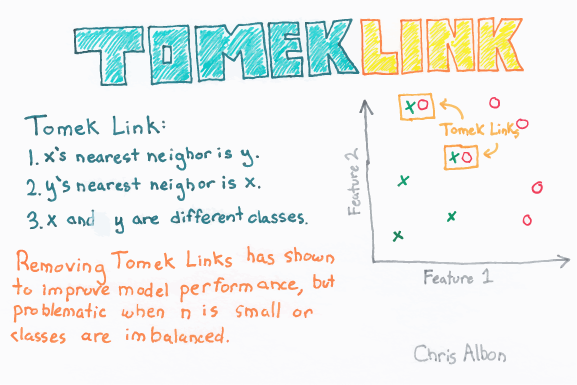 TOMEK LINK
Tomek Link:
1. x's nearest neighor is y.
2. y's nearest neighor is x.
3. x and y are different classes.
Removing Tomek Links has shown
to improve model performance, but
problematic when n is small or
classes are imbalanced.
Tomek Links
Feature 2
Feature 1
Chris Albon